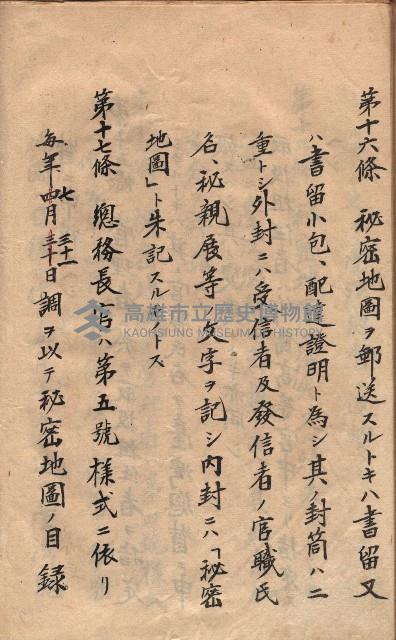 第十六條 秘密地圖ヲ郵送スルトキハ書留又
ハ書留小包、配達證明ト為シ其ノ封筒ハ二
重トシ外封ニハ受信者及發信者ノ官職氏
名、秘親展等ノ文字ヲ記シ内封ニハ「秘密
地圖」ト朱記スルモノトス
第十七條 總務長官ハ第五號樣式ニ依リ
每年七月三十一日調ヲ以テ秘密地圖ノ目錄
高雄市立歷史博物館
KAOHSIUNG MUSEUM OF HISTORY